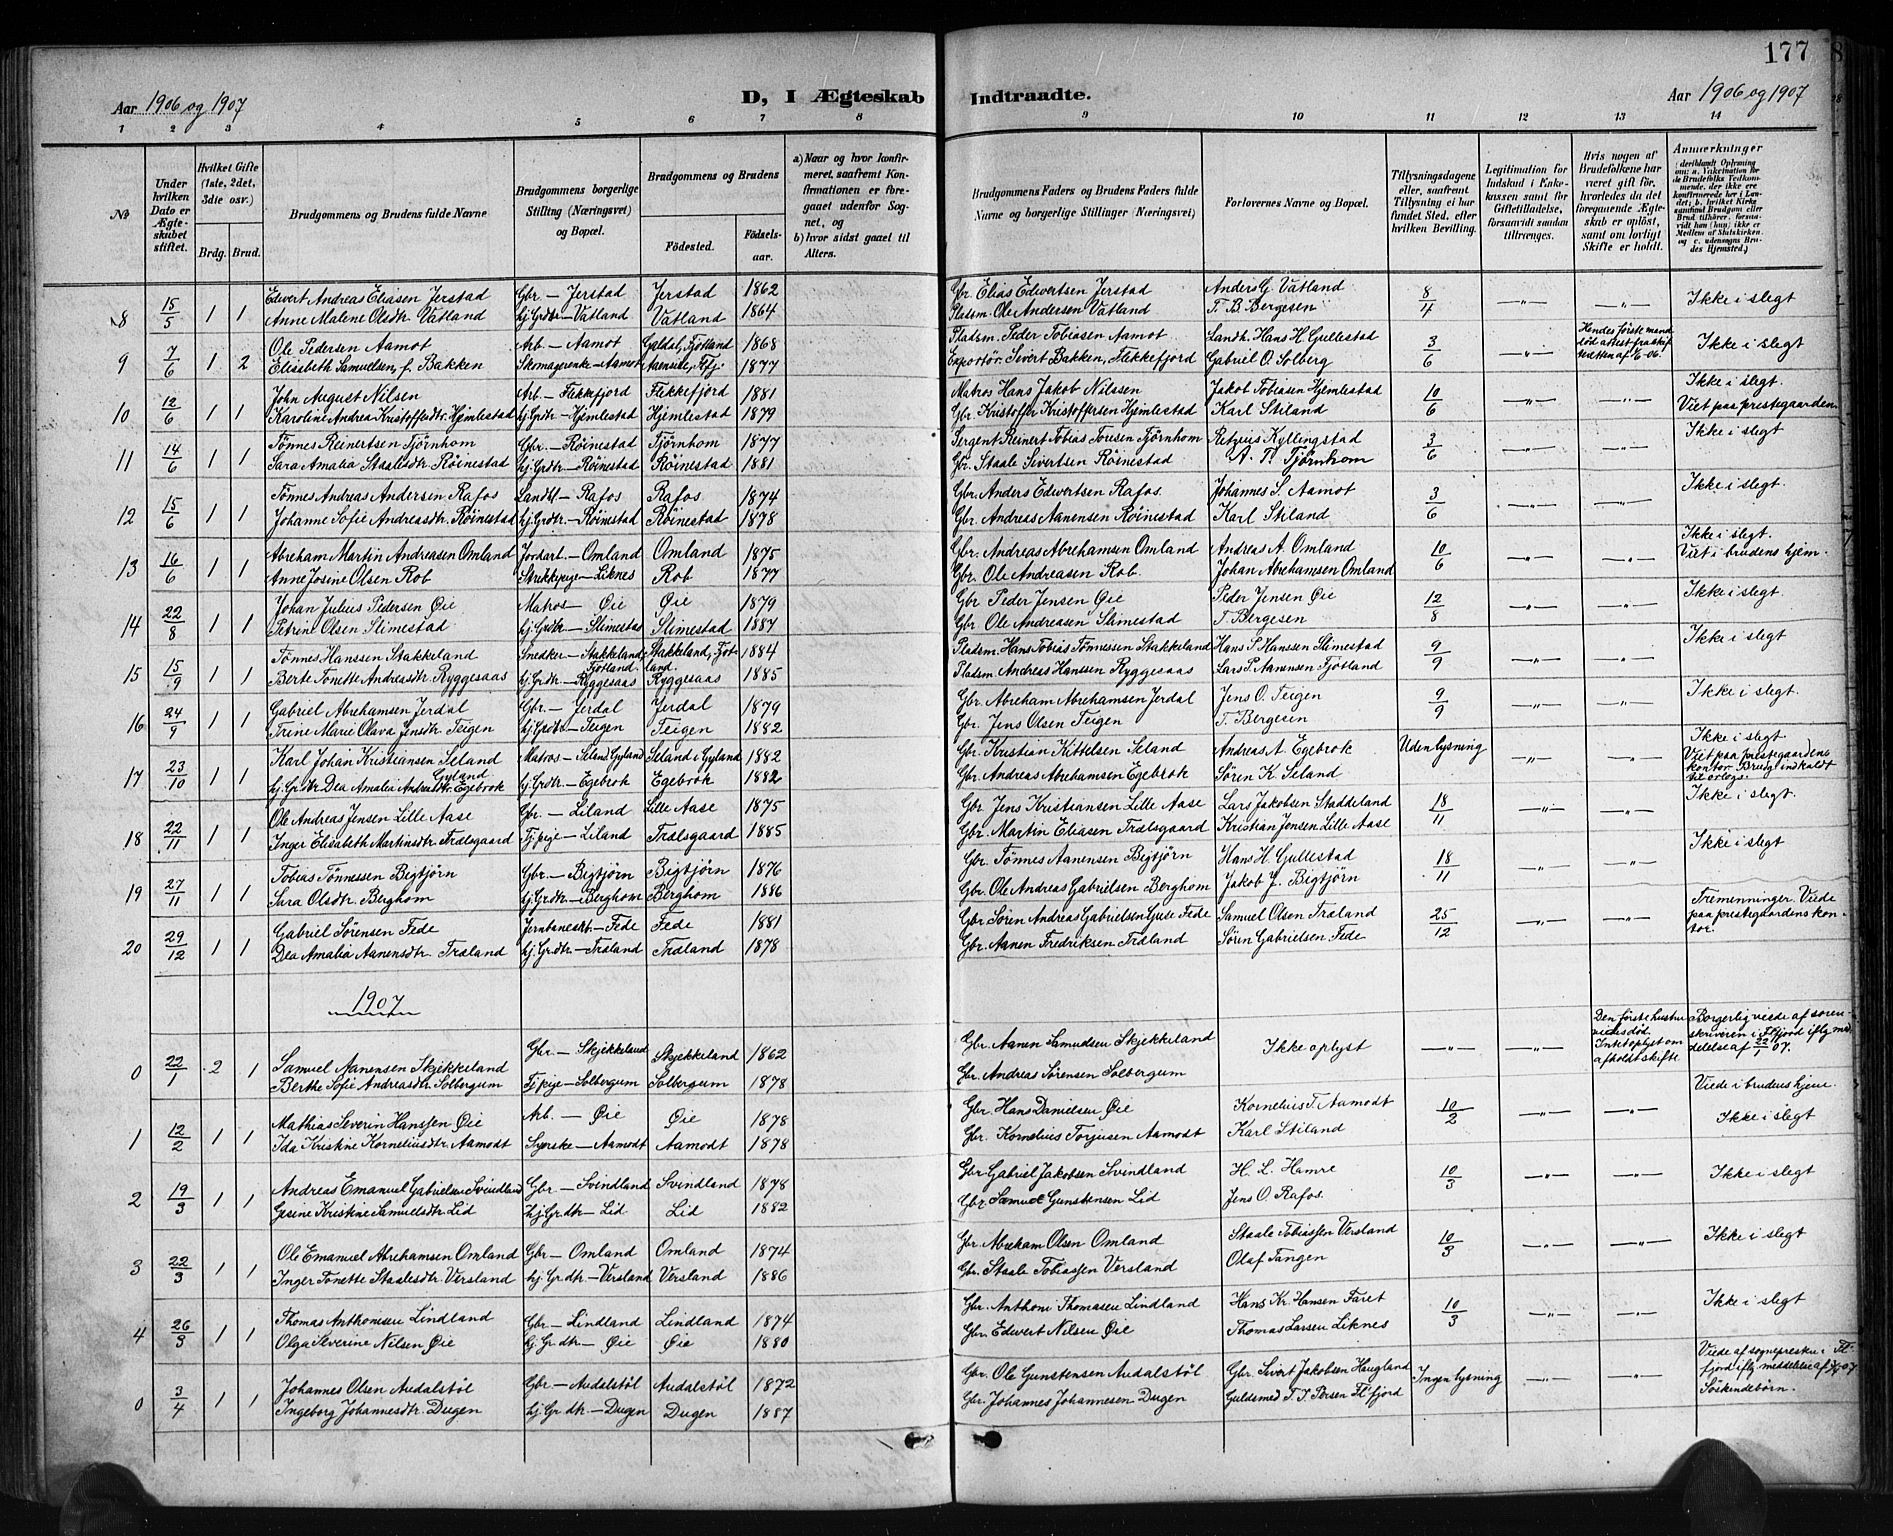 177
Aar 1906 og 1907
D, I Ægteskab Indtraadte.
Aar 1906 og 1907
1 2 3 4 5 6 7 8 9 10 11 12 13 14
No
Under hvilken Dato er Ægteskabet stiftet.
Hvilket Gifte (1ste, 2det, 3die osv.)
Brdg. Brud.
Brudgommens og Brudens fulde Navne
Brudgommens borgerlige Stilling (Næringsvei) og Bopæl.
Brudgommens og Brudens
Fødested.
Fødselsaar.
a) Naar og hvor konfirmeret, saafremt Konfirmationen er foregaaet udenfor Sognet, og
b) hvor sidst gaaet til Alters.
Brudgommens Faders og Brudens Faders fulde Navne og borgerlige Stillinger (Næringsvei)
Forlovernes Navne og Bopæl.
Tillysningsdagene eller, saafremt Tillysning ei har fundet Sted, efter hvilken Bevilling.
Legitimation for Indskud i Enkekassen samt for Giftetilladelse, forsaavidt saadan tiltrænges.
Hvis nogen af Brudefolkene har været gift før, hvorledes da det foregaaende Ægteskab er opløst, samt om lovligt Skifte er holdt.
Anmerkninger
8 15/5 1 1 Edvert Andreas Eliasen Jerstad Gbr – Jerstad Jerstad 1862 Gbr. Elias Edvertsen Jerstad Anders G. Vatland 8/4 –"– –"– Ikke i slegt
Anne Malene Olsdtr. Vatland hj. Grdtr – Vatland Vatland 1864 Pladsm. Ole Andersen Vatland T. B. Bergesen
9 7/6 1 2 Ole Pedersen Aamot Arb – Aamot Galdal, Fjotland 1868 Pladsm. Peder Tobiasen Aamot Landh. Hans H. Gullestad 3/6 –"– Hendes første mand død attest fra skifteretten af 1/6 06. Ikke i slegt
Elisabeth Samuelsen, f. Bakken Skomagerenke – Aamot 1877 Exportør. Sivert Bakken, Flekkefjord Gabriel O. Solberg
10 12/6 1 1 John August Nilsen Arb – Flekkefjord Flekkefjord 1881 Matros Hans Jakob Nilssen Jakob Tobiasen Hjemlestad 10/6 –"– –"– Ikke i slegt.
Karoline Andrea Kristoffedtr. Hjemlestad hj. Grdtr – Hjemlestad Hjemlestad 1879 Gbr. Kristoffer Kristoffersen Hjemlestad Karl Stiland Viet paa prestegaarden.
11 14/6 1 1 Tønnes Reinertsen Tjørnhom Gbr – Røinestad Tjørnhom 1877 Sergent Reinert Tobias Toresen Tjørnhom Retzius Kyllingstad 3/6 –"– –"– Ikke i slegt
Sara Amalia Staalesdtr. Røinestad hj. Grdtr – Røinestad Røinestad 1881 Gbr. Staale Sivertsen Røinestad A. T. Tjørnhom
12 15/6 1 1 Tønnes Andreas Andersen Rafos Landbr – Rafos Rafos 1874 Gbr. Anders Edvertsen Rafos. Johannes S. Aamot 3/6 –"– –"– Ikke i slegt.
Johanne Sofie Andreasdtr. Røinestad hj. Grdtr. – Røinestad Røinestad 1878 Gbr. Andreas Aanensen Røinestad Karl Stiland
13 16/6 1 1 Abreham Martin Andreasen Omland Jordarb. – Omland Omland 1875 Gbr. Andreas Abrehamsen Omland Andreas A. Omland 10/6 –"– –"– Ikke i slegt.
Anne Josine Olsen Rob Strikkepige – Liknes Rob 1877 Gbr. Ole Andreasen Rob. Johan Abrehamsen Omland Viet i brudens hjem.
14 22/8 1 1 Johan Julius Pedersen Øie Matros – Øie Øie 1879 Gbr Peder Jensen Øie Peder Jensen Øie 12/8 –"– –"– Ikke i slegt.
Petrine Olsen Slimestad hj. Grdtr – Slimestad Slimestad 1887 Gbr Ole Andreasen Slimestad T. Bergesen
15 15/9 1 1 Tønnes Hanssen Stakkeland Snedker – Stakkeland, Fjotland Stakkeland, Fjotland. 1884 Pladsm. Hans Tobias Tønnessen Stakkeland Hans S. Hanssen Slimestad 9/9 –"– –"– Ikke i slegt
Berte Tonette Andreasdtr Ryggesaas hj. Grdtr – Ryggesaas Ryggesaas 1885 Pladsm. Andreas Hanssen Ryggesaas Lars P. Aanensen Fjotland
16 24/9 1 1 Gabriel Abrehamsen Jerdal Gbr. – Jerdal Jerdal 1879 Gbr. Abreham Abrehamsen Jerdal Jens O. Teigen 9/9 –"– –"– Ikke i slegt.
Trine Marie Olava Jensdtr. Teigen hj. Grdtr – Teigen Teigen 1882 Gbr. Jens Olsen Teigen T. Bergesen
17 23/10 1 1 Karl Johan Kristiansen Seland Gyland Matros – Seland, Gyland Seland i Gyland 1882 Gbr. Kristian Kittelsen Seland Andreas A. Egebrok Uden lysning –"– –"– Ikke i slegt. Viet paa prestegaardens kontor. Brudg. indkaldt til orlogs.
hj. Gr.dtr Dea Amalia Andreasdtr. Egebrok hj. Grdtr. – Egebrok Egebrok 1882 Gbr. Andreas Abrehamsen Egebrok Søren K. Seland
18 22/11 1 1 Ole Andreas Jensen Lille Aase Gbr. – Liland Lille Aase 1875 Gbr Jens Kristiansen Lille Aase Lars Jakobsen Staddeland 18/11 –"– –"– Ikke i slegt.
Inger Elisabeth Martinsdtr. Trælsgaard Tj. pige – Liland Trælsgaard 1885 Gbr. Martin Eliasen Trælsgaard Kristian Jensen Lille Aase
19 27/11 1 1 Tobias Tønnessen Bigtjørn Gbr. – Bigtjørn Bigtjørn 1876 Gbr Tønnes Aanensen Bigtjørn Hans H. Gullestad 18/11 –"– –"– Ikke i slegt
Sara Olsdtr. Berghom hj. Grdtr. – Berghom Berghom 1886 Gbr Ole Andreas Gabrielsen Berghom Jakob J. Bigtjørn
20 29/12 1 1 Gabriel Sørensen Fede Jernbanearb. – Fede Fede 1881 Gbr Søren Andreas Gabrielsen Fede Samuel Olsen Træland 25/12 –"– –"– Tremenninger. Viede paa prestegaardens kontor.
Dea Amalia Aanensdtr. Træland hj. Grdtr. – Træland Træland 1878 Gbr. Aanen Fredriksen Træland Søren Gabrielsen Fede
1907
0 22/1 2 1 Samuel Aanensen Skjekkeland Gbr – Skjekkeland Skjekkeland 1862 Gbr. Aanen Samuelsen Skjekkeland Ikke oplyst –"– –"– Den første hustru død. Intet oplyst om afholdt skifte. Borgerlig viede af sorenskriveren i Fl'fjord iflg meddelelse af 22/1 07.
Berthe Sofie Andreasdtr. Solbergum Tj. pige – Solbergum Solbergum 1878 Gbr. Andreas Sørensen Solbergum
1 12/2 1 1 Mathias Severin Hanssen Øie Arb. – Øie Øie 1878 Gbr. Hans Danielsen Øie Kornelius T. Aamodt 10/2 –"– –"– Viede i brudens hjem. Ikke i slegt
Ida Kristine Korneliusdtr Aamodt Syerske – Aamodt Aamodt 1878 Gbr. Kornelius Torjusen Aamodt Karl Stiland
2 19/3 1 1 Andreas Emanuel Gabrielsen Svindland Gbr – Svindland Svindland 1878 Gbr Gabriel Jakobsen Svindland H. L. Hamre 10/3 –"– –"– Ikke i slegt
Gesine Kristine Samuelsdtr Lid hj. Gr. dtr – Lid Lid 1882 Gbr Samuel Gunstensen Lid Jens O. Rafos.
3 22/3 1 1 Ole Emanuel Abrehamsen Omland Gbr – Omland Omland 1874 Gbr. Abreham Olsen Omland Staale Tobiassen Versland 10/3 –"– –"– Ikke i slegt
Inger Tonette Staalesdtr Versland hj. Gr. dtr – Versland Versland 1886 Gbr. Staale Tobiassen Versland Olaf Tangen
4 26/3 1 1 Thomas Anthonisen Lindland Gbr – Lindland Lindland 1874 Gbr. Anthoni Thomasen Lindland Hans Kr. Hansen Faret 10/3 –"– –"– Ikke i slegt
Olga Severine Nilsen Øie hj. Gr. dtr – Øie Øie 1880 Gbr. Edvert Nilsen Øie Thomas Larsen Liknes
0 3/4 1 1 Johannes Olsen Audalstøl Gbr – Audalstøl Audalstøl 1872 Gbr. Ole Gunstensen Audalstøl Gbr. Sivert Jakobsen Haugland Ingen lysning –"– –"– Viede af sognepresten i Fl'fjord iflg meddelelse af 3/4 07. Søskendebørn.
Ingeborg Johannesdtr. Dugen hj. Gr. dtr – Dugen Dugen 1887 Gbr. Johannes Johannesen Dugen Guldsmed T. T. Iversen Fl'fjord